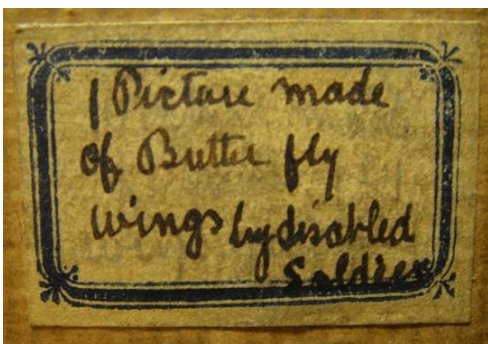 1 Picture made
of Butter fly
wings by disabled
Soldier